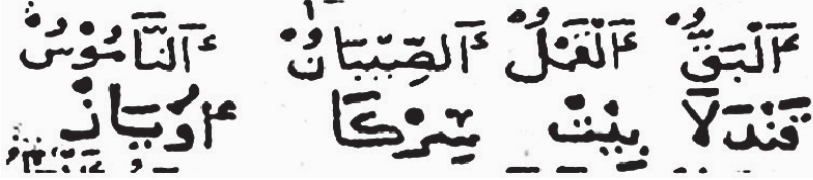 اَلْبَقُّ اَلْقَمْلُ اَلصِّيبَانُ اَلنَّامُوْسُ
قَنْدَلَا بِيتْ سِرْكَا اُويَازْ